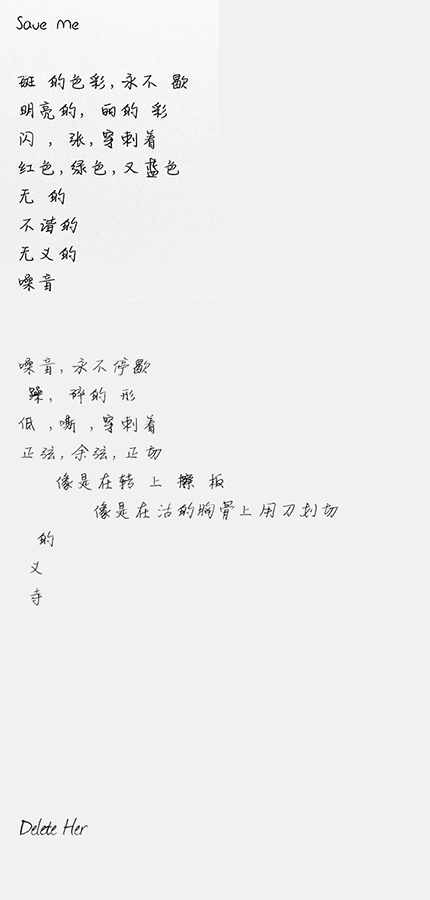 Save Me
斑 的色彩,永不 歇
明亮的, 丽的 彩
闪 , 张,穿刺着
红色,绿色,又蓝色
无 的
不谐的
无义的
噪音
噪音,永不停歇
躁, 碎的 形
低 ,嘶 ,穿刺着
正弦,余弦,正切
像是在转 上 擦 板
像是在活的胸骨上用刀划切
的
义
寺
Delete Her